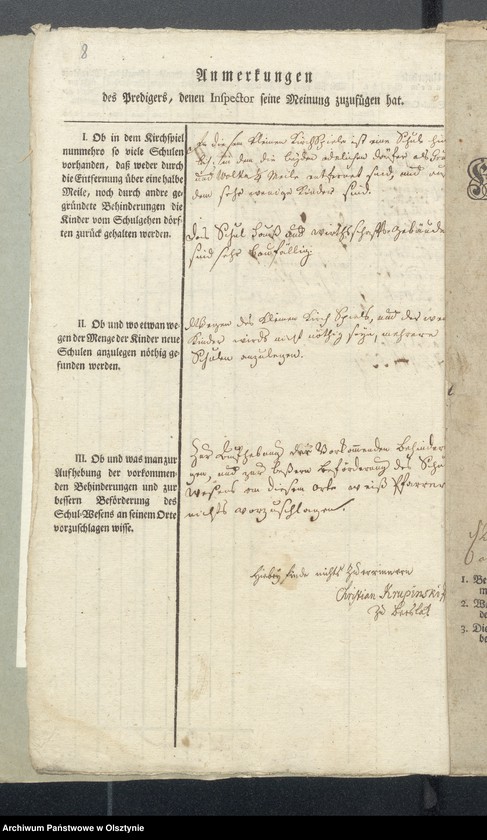 8
Anmerkungen
des Predigers, denen Inspector seine Meinung zuzufügen hat.
I. Ob in dem Kirchspiel
nunmehro so viele Schulen
vorhanden, daß weder durch
die Entfernung über eine halbe
Meile, noch durch andre ge-
gründete Behinderungen die
Kinder vom Schulgehen dörf-
ten zurück gehalten werden.
In diesem kleinen Kirchspiele ist eine Schule
Meile entfernet sind, und in
dem sehr wenige Kinder sind.
Das Schul Hauß und Wirthschaffts Gebäude
sind sehr baufällig
II. Ob und wo etwan we-
gen der Menge der Kinder neue
Schulen anzulegen nöthig ge-
funden werden.
Wegen des kleinen Kirch Spiels, und der
Kinder wirds nicht nöthig seyn, mehrere
Schulen anzulegen.
III. Ob und was man zur
Aufhebung der vorkommen-
den Behinderungen und zur
bessern Beförderung des
Schul-Wesens an seinem Orte
vorzuschlagen wisse.
Zur Aufhebung der Vorkommenden Behinder
gen, und zur bessern Beförderung des Schul
Wesens an diesem Orte weiß Pfarrer
nichts vorzuschlagen.
Hiebey finde nichts zu erinnern
Christian Krupinski
zu
1. Be
m
2. W
de
3. Die
be
Archiwum Państwowe w Olsztynie